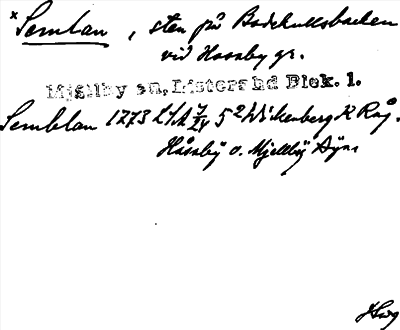 x Semlan, sten på Bodekullsbacken
vid Hosaby gr.
Mjällby sn, Listers hd Blek. l.
Semblan 1773 LSA 5² Wickenberg K Rå.
Håsaby o. Mjellby Äga